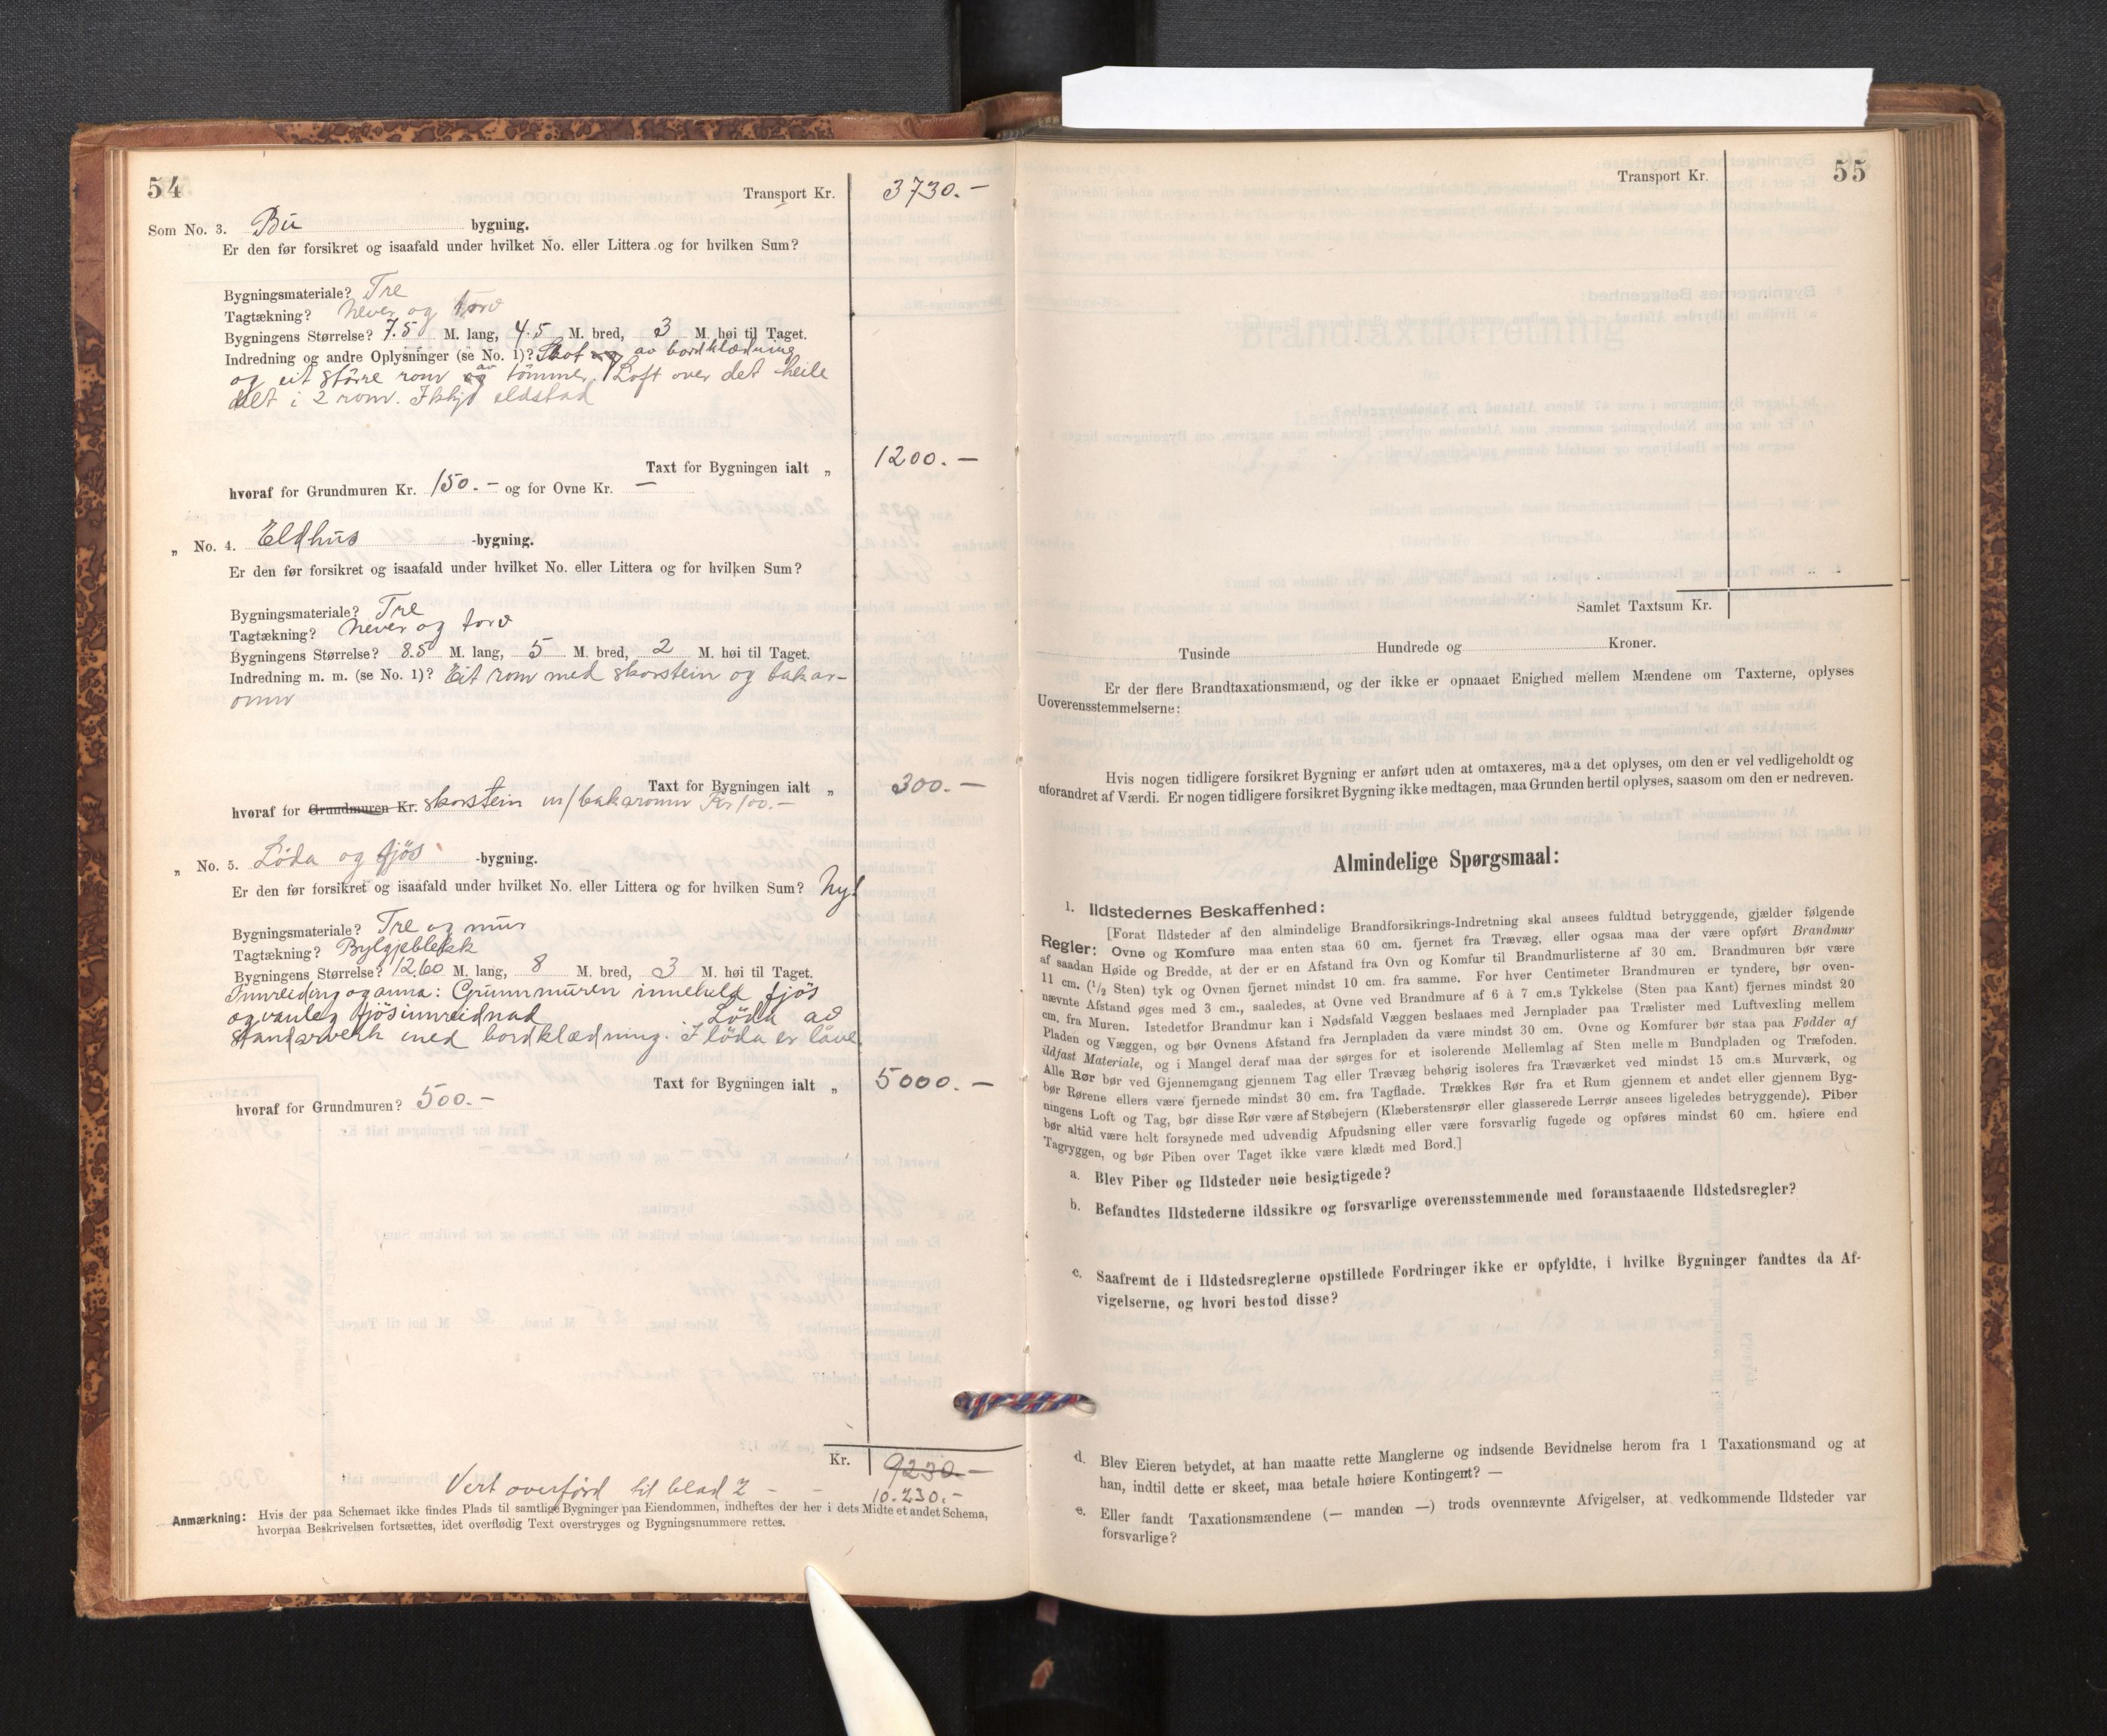 54
Transport Kr. 3730.-
Som No. 3. Bu bygning.
Er den før forsikret og isaafald under hvilket No. eller Littera og for hvilken Sum?
Bygningsmateriale? Tre
Tagtækning? Never og torv
Bygningens Størrelse? 7.5 M. lang, 4.5 M. bred, 3 M. høi til Taget.
Indredning og andre Oplysninger (se No. 1)? Skot av bordklædning
og eit större rom av tömmer. Loft over det heile
delt i 2 rom. Ikkje eldstad
Taxt for Bygningen ialt „ 1200.-
hvoraf for Grundmuren Kr. 150.- og for Ovne Kr. —
„ No. 4. Eldhus -bygning.
Er den før forsikret og isaafald under hvilket No. eller Littera og for hvilken Sum?
Bygningsmateriale? Tre
Tagtækning? Never og torv
Bygningens Størrelse? 8.5 M. lang, 5 M. bred, 2 M. høi til Taget.
Indredning m. m. (se No. 1)? Eit rom med skorstein og bakar-
omn
Taxt for Bygningen ialt „ 300.-
hvoraf for Grundmuren Kr. skorstein m/bakaromn Kr 100.-
„ No. 5. Löda og fjös -bygning.
Er den før forsikret og isaafald under hvilket No. eller Littera og for hvilken Sum? Ny!
Bygningsmateriale? Tre og mur
Tagtækning? Bylgjeblekk
Bygningens Størrelse? 12.60 M. lang, 8 M. bred, 3 M. høi til Taget.
Innreiding og anna: Grunnmuren inneheld fjös
og vanleg fjösinnreidnad Löda av
standarverk med bordklædning. I löda er låve.
Taxt for Bygningen ialt „ 5000.-
hvoraf for Grundmuren? 500.-
Kr. 9230.-
Vert overförd til blad 2 - - 10.230.-
Anmærkning: Hvis der paa Schemaet ikke findes Plads til samtlige Bygninger paa Eiendommen, indheftes der her i dets Midte et andet Schema,
hvorpaa Beskrivelsen fortsættes, idet overflødig Text overstryges og Bygningsnummere rettes.
55
Transport Kr.
Samlet Taxtsum Kr.
Tusinde Hundrede og Kroner.
Er der flere Brandtaxationsmænd, og der ikke er opnaaet Enighed mellem Mændene om Taxterne, oplyses
Uoverensstemmelserne:
Hvis nogen tidligere forsikret Bygning er anført uden at omtaxeres, maa det oplyses, om den er vel vedligeholdt og
uforandret af Værdi. Er nogen tidligere forsikret Bygning ikke medtagen, maa Grunden hertil oplyses, saasom om den er nedreven.
Almindelige Spørgsmaal:
1. Ildstedernes Beskaffenhed:
[Forat Ildsteder af den almindelige Brandforsikrings-Indretning skal ansees fuldtud betryggende, gjælder følgende
Regler: Ovne og Komfure maa enten staa 60 cm. fjernet fra Trævæg, eller ogsaa maa der være opført Brandmur
af saadan Høide og Bredde, at der er en Afstand fra Ovn og Komfur til Brandmurlisterne af 30 cm. Brandmuren bør være
11 cm. (1/2 Sten) tyk og Ovnen fjernet mindst 10 cm. fra samme. For hver Centimeter Brandmuren er tyndere, bør oven-
nævnte Afstand øges med 3 cm., saaledes, at Ovne ved Brandmure af 6 à 7 cm.s Tykkelse (Sten paa Kant) fjernes mindst 20
cm. fra Muren. Istedetfor Brandmur kan i Nødsfald Væggen beslaaes med Jernplader paa Trælister med Luftvexling mellem
Pladen og Væggen, og bør Ovnens Afstand fra Jernpladen da være mindst 30 cm. Ovne og Komfurer bør staa paa Fødder af
ildfast Materiale, og i Mangel deraf maa der sørges for et isolerende Mellemlag af Sten mellem Bundpladen og Træfoden.
Alle Rør bør ved Gjennemgang gjennem Tag eller Trævæg behørig isoleres fra Træværket ved mindst 15 cm.s Murværk, og
bør Rørene ellers være fjernede mindst 30 cm. fra Tagflade. Trækkes Rør fra et Rum gjennem et andet eller gjennem Byg-
ningens Loft og Tag, bør disse Rør være af Støbejern (Klæberstensrør eller glasserede Lerrør ansees ligeledes betryggende). Piber
bør altid være helt forsynede med udvendig Afpudsning eller være forsvarlig fugede og opføres mindst 60 cm. høiere end
Tagryggen, og bør Piben over Taget ikke være klædt med Bord.]
a. Blev Piber og Ildsteder nøie besigtigede?
b. Befandtes Ildstederne ildssikre og forsvarlige overensstemmende med foranstaaende Ildstedsregler?
c. Saafremt de i Ildstedsreglerne opstillede Fordringer ikke er opfyldte, i hvilke Bygninger fandtes da Af-
vigelserne, og hvori bestod disse?
d. Blev Eieren betydet, at han maatte rette Manglerne og indsende Bevidnelse herom fra 1 Taxationsmand og at
han, indtil dette er skeet, maa betale høiere Kontingent? —
e. Eller fandt Taxationsmændene (— manden —) trods ovennævnte Afvigelser, at vedkommende Ildsteder var
forsvarlige?